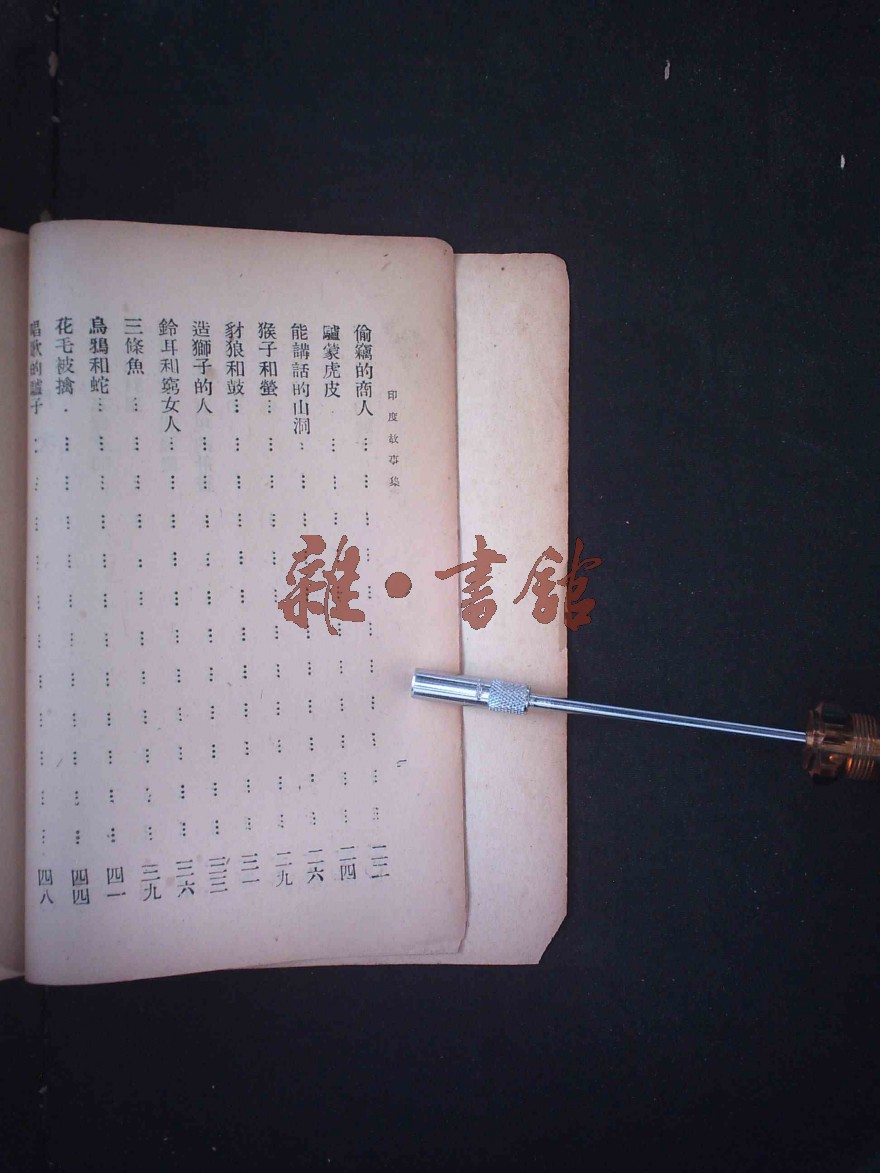 印度故事集
偷竊的商人 … … … … … … … … … 二二
驢蒙虎皮 … … … … … … … … … 二四
能講話的山洞 … … … … … … … … … 二六
猴子和螢 … … … … … … … … … 二九
豺狼和鼓 … … … … … … … … … 三一
造獅子的人 … … … … … … … … … 三三
鈴耳和窮女人 … … … … … … … … … 三六
三條魚 … … … … … … … … … 三九
烏鴉和蛇 … … … … … … … … … 四一
花毛被擒 … … … … … … … … … 四四
唱歌的驢子 … … … … … … … … … 四八
雜·書館